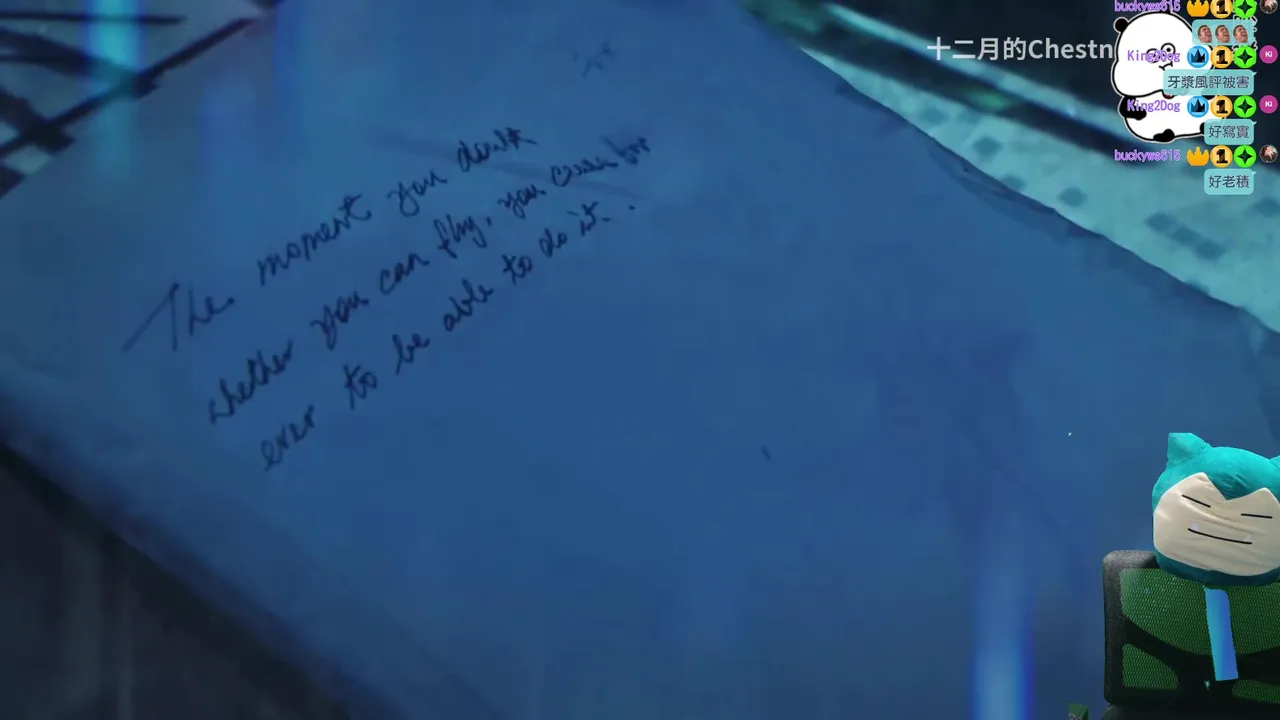 The moment you doubt
whether you can fly, you cease for
ever to be able to do it.
十二月的Chestn
buckyws515
King2Dog
牙漿風評被害
King2Dog
好寫實
buckyws515
好老積